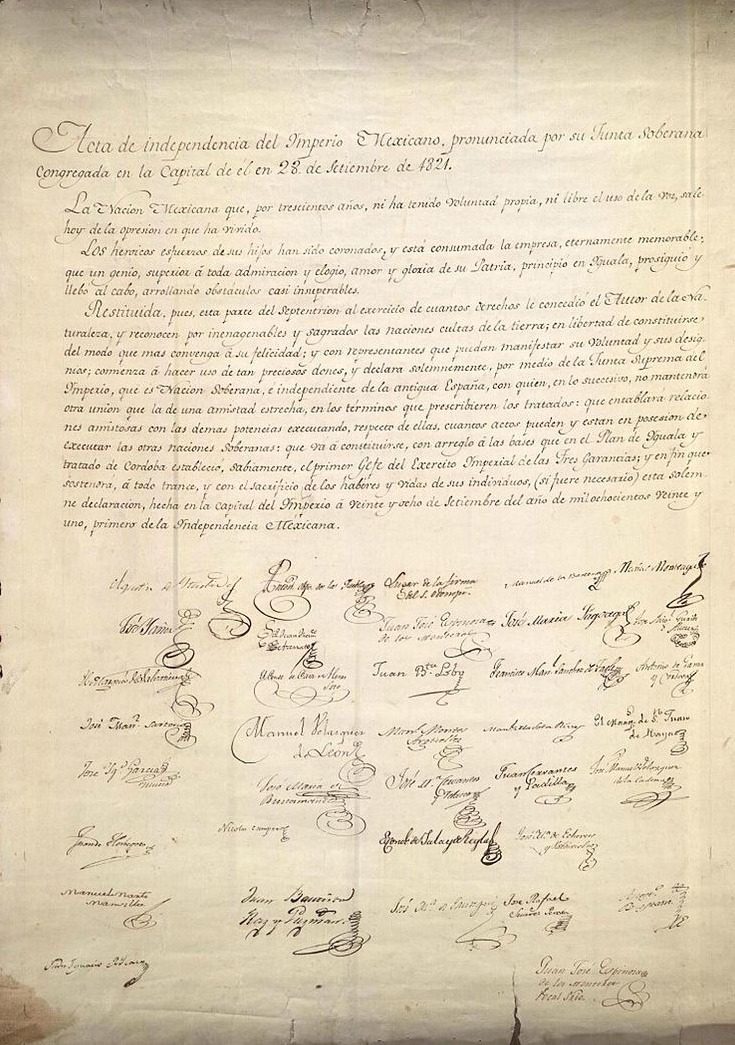 Acta de independencia del Imperio Mexicano, pronunciada por su Junta Soberana
congregada en la Capital de él en 28 de Setiembre de 1821.
La Nacion Mexicana que, por trescientos años, ni ha tenido voluntad propia, ni libre el uso de la voz, sale
hoy de la opresion en que ha vivido.
Los heroicos esfuerzos de sus hijos han sido coronados, y está consumada la empresa, eternamente memorable,
que un genio, superior á toda admiracion y elogio, amor y gloria de su Patria, principió en Iguala, prosiguió y
llebó al cabo, arrollando obstáculos casi insuperables.
Restituida, pues, esta parte del Septentrion al exercicio de cuantos derechos le concedió el Autor de la Na-
turaleza, y reconocen por inenagenables y sagrados las naciones cultas de la tierra; en libertad de constituirse
del modo que mas convenga á su felicidad; y con representantes que puedan manifestar su voluntad y sus desig-
nios; comienza á hacer uso de tan preciosos dones, y declara solemnemente, por medio de la Junta Suprema del
Imperio, que es Nacion Soberana, é independiente de la antigua España, con quien, en lo succesivo, no mantendrá
otra union que la de una amistad estrecha, en los términos que prescribieren los tratados: que entablará relacio-
nes amistosas con las demas potencias executando, respecto de ellas, cuantos actos pueden y estan en posesion de
executar las otras naciones Soberanas: que vá á constituirse, con arreglo á las bases que en el Plan de Iguala y
tratado de Cordoba estableció, sabiamente, el primer Gefe del Exercito Imperial de las Tres Garantias; y en fin que
sostendrá, á todo trance, y con el sacrificio de los haberes y vidas de sus individuos, (si fuere necesario) esta solem-
ne declaracion, hecha en la Capital del Imperio á veinte y ocho de Setiembre del año de mil ochocientos veinte y
uno, primero de la Independencia Mexicana.
Agustin de Iturbide Lugar de la firma Manuel de la Barcena Matias Monteagudo
del S. Odonojú
José Yañez Juan José Espinosa José Maria Fagoaga
de los Monteros
Juan B.ta Lobo Francisco Man.l Sanchez de Tagle Antonio de Gama
y Cordova
José Man.l Sartorio Manuel Velazquez Man.l Montes
de Leon Argüelles
José Maria de José M. Cervantes Juan Cervantes José Manuel Velazquez
Bustamante y Velasco y Padilla de la Cadena
Nicolas Campero El conde de Jala y de Regla José M.a de Echevers
Manuel Martz Juan Bautista José M.a de Jauregui José Rafael
Mansilla Raz y Guzman. Suarez Pereda
Juan José Espinosa
de los Monteros